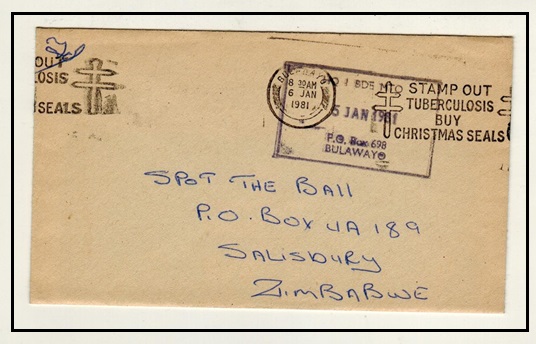 OUT
LOSIS
SEALS
BULAWAYO
8 30AM
6 JAN
1981
5 JAN 1981
P.O. Box 698
BULAWAYO
STAMP OUT
TUBERCULOSIS
BUY
CHRISTMAS SEALS
SPOT THE BALL
P.O. BOX UA 189
SALISBURY
ZIMBABWE